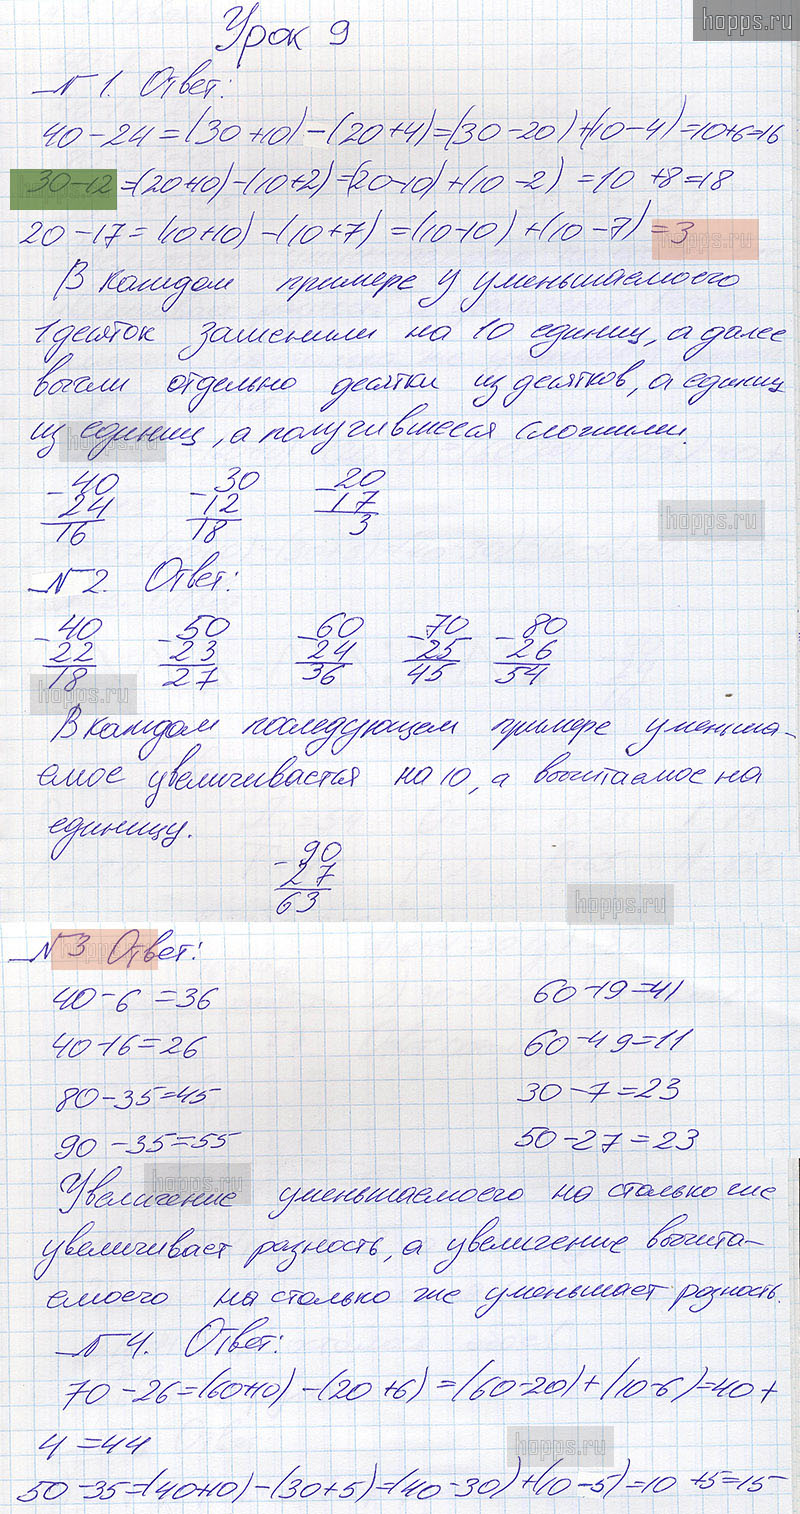 hopps.ru
Урок 9
№1. Ответ:
40-24=(30+10)-(20+4)=(30-20)+(10-4)=10+6=16
30-12=(20+10)-(10+2)=(20-10)+(10-2)=10+8=18
20-17=(10+10)-(10+7)=(10-10)+(10-7)=3
hopps.ru
В каждом примере у уменьшаемого
1 десяток заменили на 10 единиц, а далее
вычли отдельно десятки из десятков, а единиц
из единиц, а получившееся сложили.
hopps.ru
-40 -30 -20
24 12 17
16 18 3
hopps.ru
№2. Ответ:
-40 -50 -60 -70 -80
22 23 24 25 26
18 27 36 45 54
hopps.ru
В каждом последующем примере уменьша-
емое увеличивается на 10, а вычитаемое на
единицу.
-90
27
63
hopps.ru
№3 Ответ:
40-6=36 60-19=41
40-16=26 60-49=11
80-35=45 30-7=23
90-35=55 50-27=23
hopps.ru
Увеличение уменьшаемоего на столько же
увеличивает разность, а увеличение вычита-
емоего на столько же уменьшает разность.
№4. Ответ:
70-26=(60+10)-(20+6)=(60-20)+(10-6)=40+
4=44
hopps.ru
50-35=(40+10)-(30+5)=(40-30)+(10-5)=10+5=15